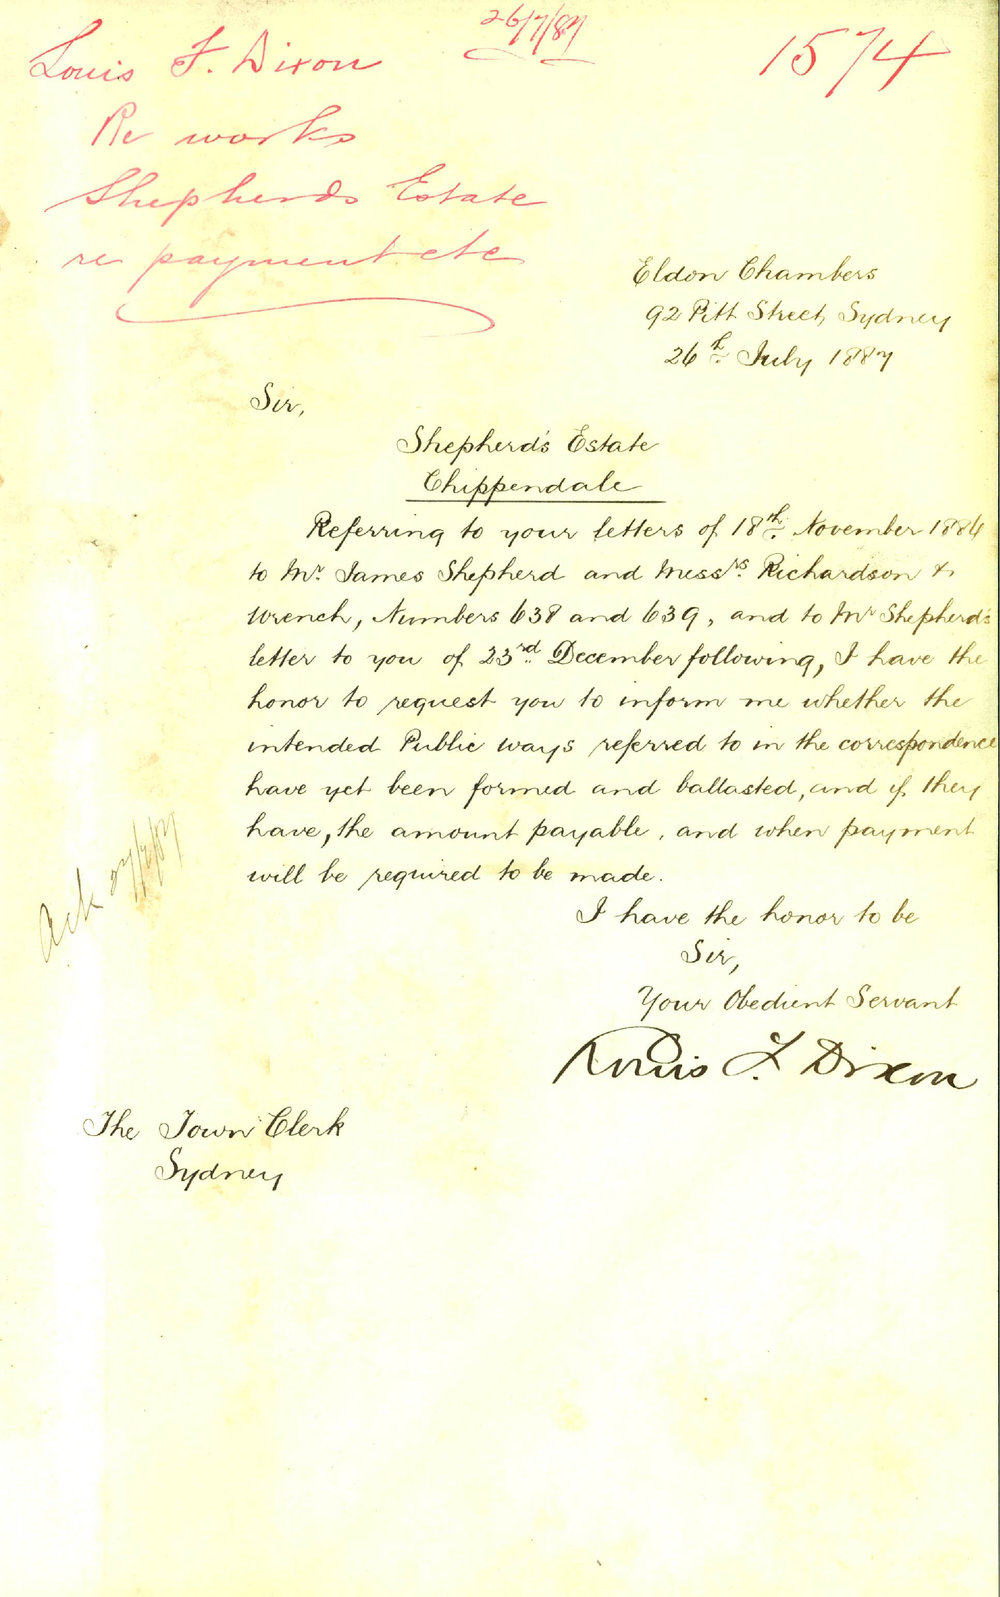 Louis F. Dixon
26/7/87
1574
Re works
Shepherds Estate
re payment etc
Eldon Chambers
92 Pitt Street, Sydney
26th July 1887
Sir,
Shepherd's Estate
Chippendale
Referring to your letters of 18th November 1884
to Mr. James Shepherd and Messrs. Richardson &
Wrench, Numbers 638 and 639, and to Mr Shepherd's
letter to you of 23rd December following, I have the
honor to request you to inform me whether the
intended Public ways referred to in the correspondence
have yet been formed and ballasted, and if they
have, the amount payable, and when payment
will be required to be made.
Ack 27/7/87
I have the honor to be
Sir,
Your Obedient Servant
Louis F. Dixon
The Town Clerk
Sydney